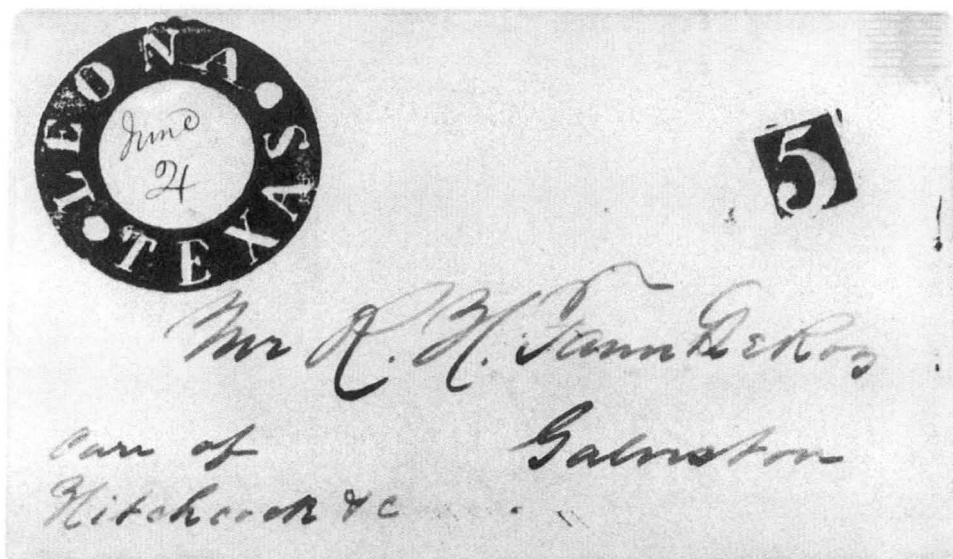 LEONA
TEXAS
June
24
5
Mr R. H.
Galveston
Care of
Hitchcock & C